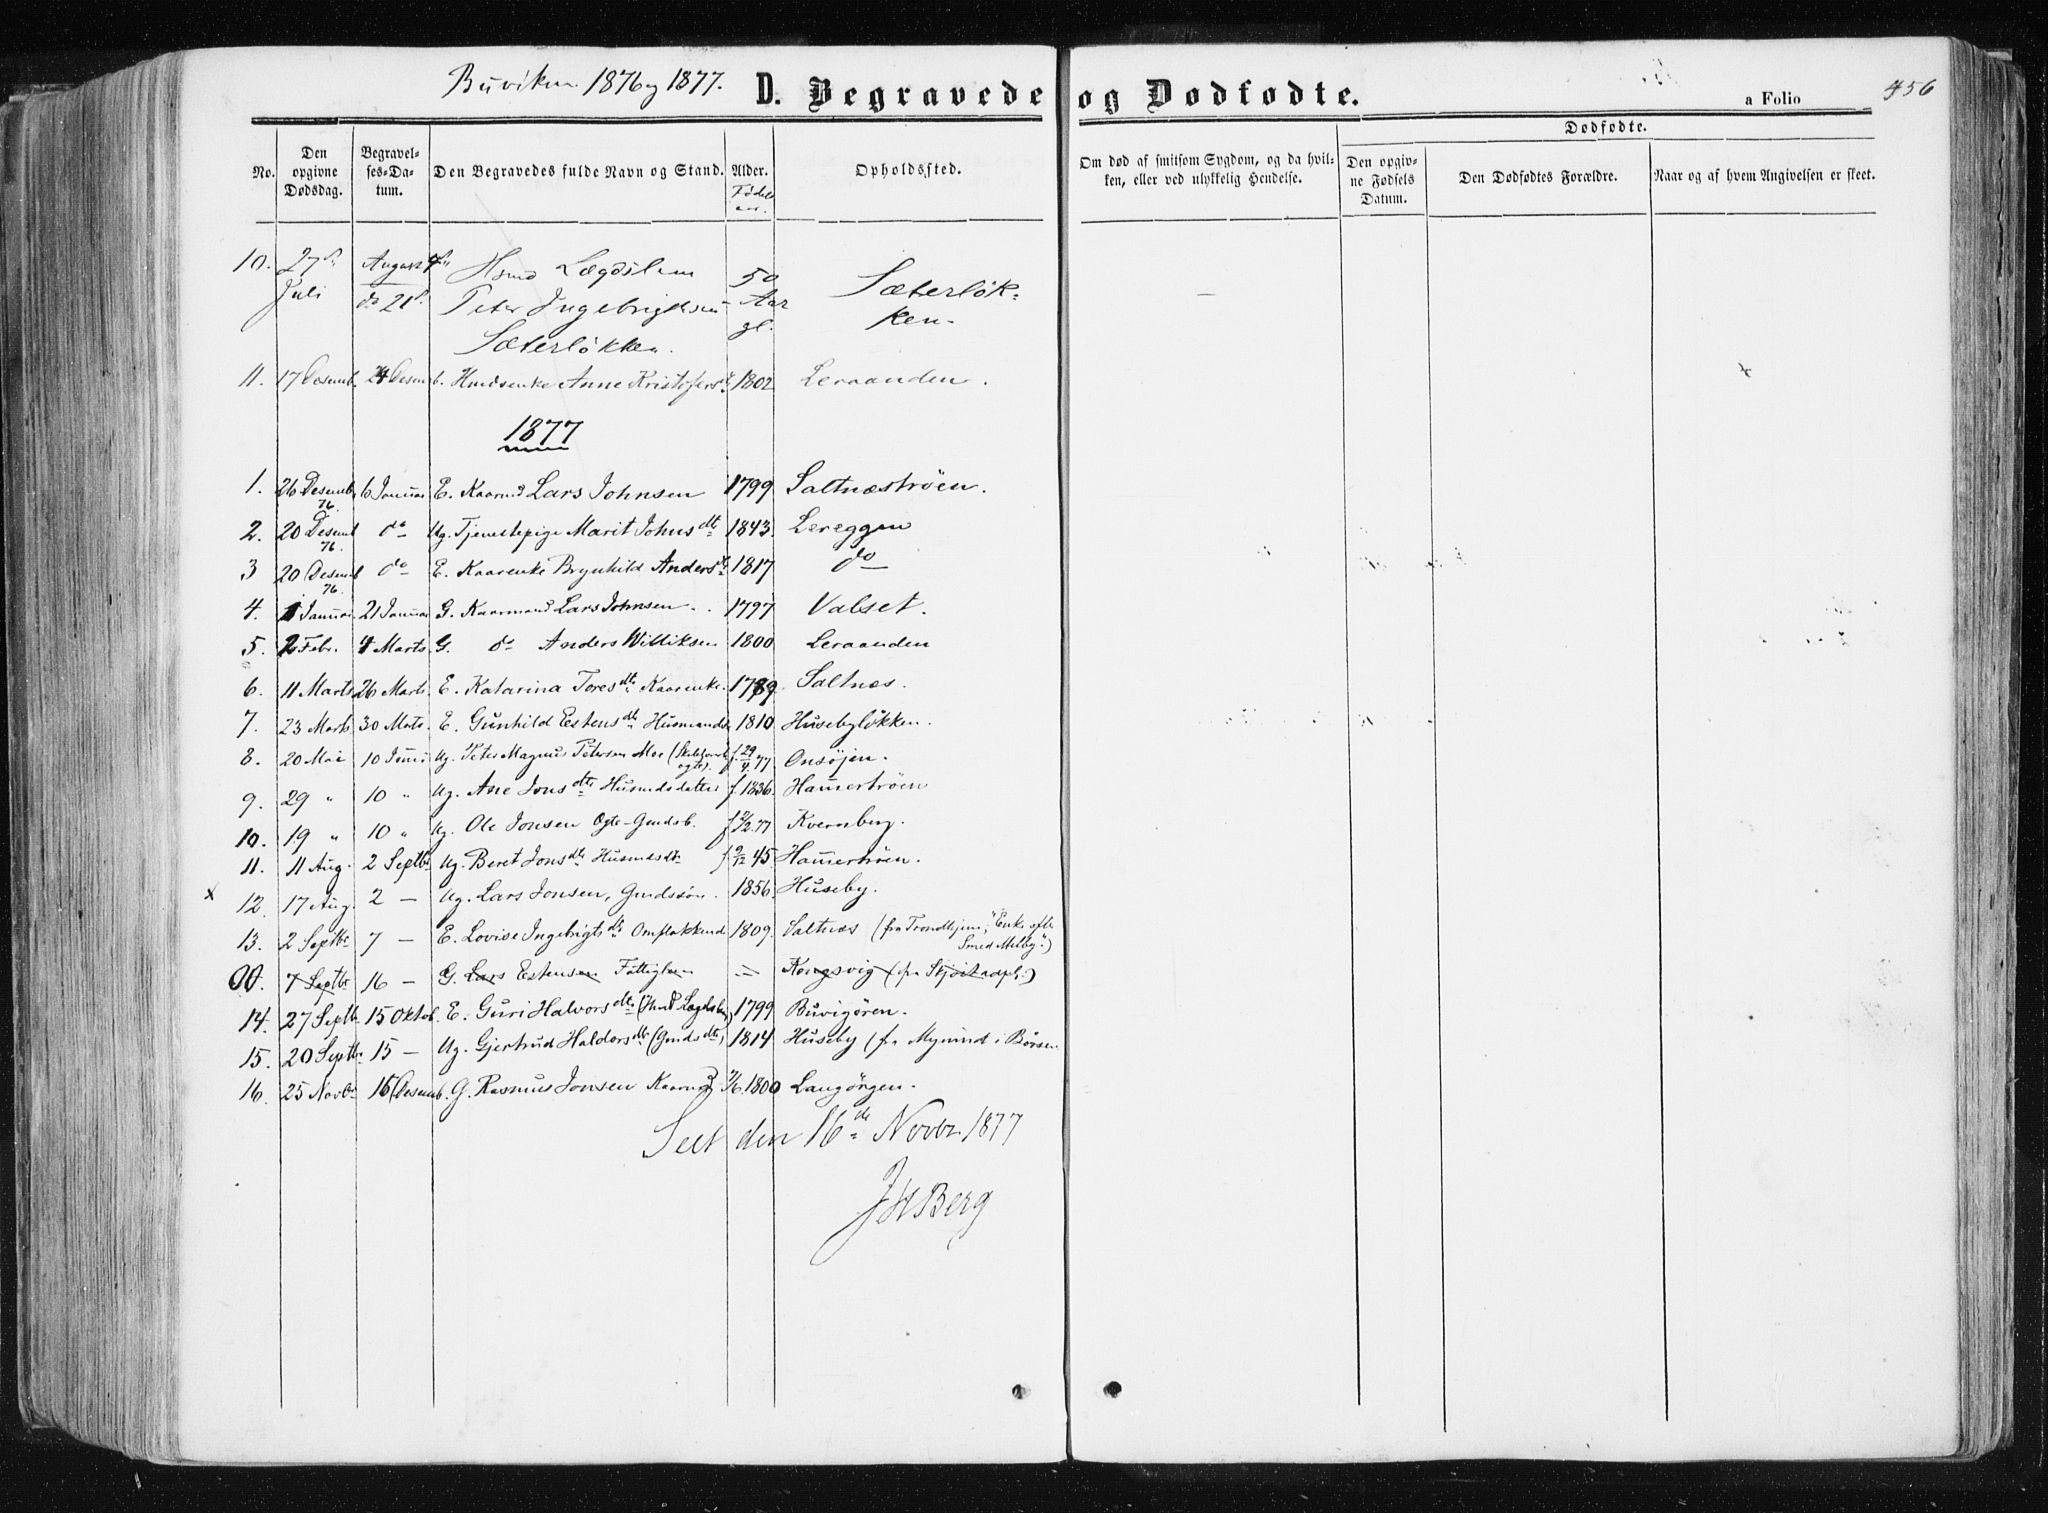 Buviken 1876 og 1877. D. Begravede og Dødfødte. a Folio 456
No. Den opgivne Dødsdag. Begravelses-Datum. Den Begravedes fulde Navn og Stand. Alder. Fødels aar. Opholdssted. Om død af smitsom Sygdom, og da hvilken, eller ved ulykkelig Hendelse. Dødfødte. Den opgivne Fødsels Datum. Den Dødfødtes Forældre. Naar og af hvem Angivelsen er skeet.
10. 27de Juli August do 21de Hsmd Lægdslem Peter Ingebrigtsen Sæterløkken. 50 Aar gl. Sæterløkken. —
11. 17 Desemb. 24 Desemb. Hmdsenke Anne Kristofersdt 1802 Leraanden.
1877
1. 26 Desemb 76. 6 Januar E. Kaarmd Lars Johnsen 1799 Saltnæstrøen.
2. 20 Desemb 76. do Ug. Tjenestepige Marit Johnsdt 1843. Lereggen
3 20 Desemb 76. do E. Kaarenke Brynhild Andersdt 1817 do
4. 1 Januar 21 Januar G. Kaarmand Lars Johnsen. 1797 Valset.
5. 2 Febr. 4 Marts G. do Anders Williksen 1800 Leraanden
6. 11 Marts 26 Marts E. Katarina Toresdt Kaarenke. 1789. Saltnes.
7. 23 Marts 30 Mats. E. Gunhild Estensdt Husmands 1810 Husebyløkken.
8. 20 Mai 10 Juni Ug. Peter Magnus Petersen Moe f. 29/4.77 Onsøjen.
9. 29 " 10 " Ug. Ane Jonsdtr Husmdsdatter f. 1836. Hamertrøen
10. 19 " 10 " Ug. Ole Jonsen Ægte-Gmdsb. f 2/2.77 Kvernberg.
11. 11 Aug. 2 Septbr Ug. Beret Jonsdtr Husmdsdtr f. 9/12 45 Hamertrøen.
x 12. 17 Aug. 2 — Ug. Lars Jonsen, Gmdssøn. 1856. Huseby.
13. 2 Septbr 7 — E. Lovise Ingebrigtsdtr Omflakkende 1809. Saltnæs (fra Trondhjem, "Enke efter Smed Melby".)
00. 7 Septbr 16 — G. Lars Estensen Fattiglem = Kongsvig (fra Skjøitadpl.)
14. 27 Septbr 15 Oktob. E. Guri Halvorsdtr (Hmd Lægdslem) 1799 Buvigøren.
15. 20 Septbr 15 — Ug. Gjertrud Haldorsdtr (Gmdsdtr) 1814 Huseby (fra Myrund i Børsen
16. 25 Novbr 16 Desemb. G. Rasmus Jonsen Kaarmd 7/6.1800 Langørgen.
Seet den 16de Novbr 1877
JHBerg